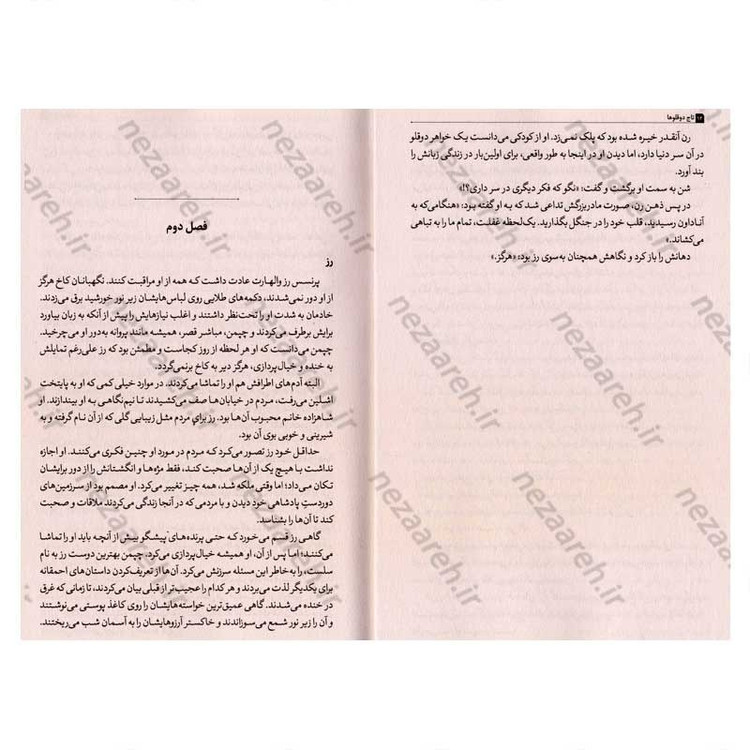 ۱۶ تاج دوقلوها
رن آنقدر خیره شده بود که پلک نمی‌زد. او از کودکی می‌دانست یک خواهر دوقلو
در آن سر دنیا دارد، اما دیدن او در اینجا به طور واقعی، برای اولین‌بار در زندگی زبانش را
بند آورد.
شن به سمت او برگشت و گفت: «نگو که فکر دیگری در سر داری؟!»
در پس ذهن رن، صورت مادربزرگش تداعی شد که به او گفته بود: «هنگامی‌که به
آناداون رسیدید، قلب خود را در جنگل بگذارید. یک‌لحظه غفلت، تمام ما را به تباهی
می‌کشاند.»
دهانش را باز کرد و نگاهش همچنان به‌سوی رز بود: «هرگز.»
فصل دوم
رز
پرنسس رز والهارت عادت داشت که همه از او مراقبت کنند. نگهبانان کاخ هرگز
از او دور نمی‌شدند، دکمه‌های طلایی روی لباس‌هایشان زیر نور خورشید برق می‌زدند.
خادمان به شدت او را تحت‌نظر داشتند و اغلب نیازهایش را پیش از آنکه به زبان بیاورد
برایش برطرف می‌کردند و چپمن، مباشر قصر، همیشه مانند پروانه به‌دور او می‌چرخید.
چپمن می‌دانست که او هر لحظه از روز کجاست و مطمئن بود که رز علی‌رغم تمایلش
به خنده و خیال‌پردازی، هرگز دیر به کاخ برنمی‌گردد.
البته آدم‌های اطرافش هم او را تماشا می‌کردند. در موارد خیلی کمی که او به پایتخت
اشلین می‌رفت، مردم در خیابان‌ها صف می‌کشیدند تا نیم‌نگاهی به او بیندازند. او
شاهزاده خانم محبوب آن‌ها بود. رز برای مردم مثل زیبایی گلی که از آن نام گرفته و به
شیرینی و خوبی بوی آن بود.
حداقل خود رز تصور می‌کرد که مردم در مورد او چنین فکری می‌کنند. او اجازه
نداشت با هیچ یک از آن‌ها صحبت کند، فقط مژه‌ها و انگشتانش را از دور برایشان
تکان می‌داد؛ اما وقتی ملکه شد، همه چیز تغییر می‌کرد. او مصمم بود از سرزمین‌های
دوردستِ پادشاهی خود دیدن و با مردمی که در آنجا زندگی می‌کردند ملاقات و صحبت
کند تا آن‌ها را بشناسد.
گاهی رز قسم می‌خورد که حتی پرنده‌های پیشگو بیش از آنچه باید او را تماشا
می‌کنند؛ اما پس از آن، او همیشه خیال‌پردازی می‌کرد. چپمن بهترین دوست رز به نام
سلست، را به‌خاطر این مسئله سرزنش می‌کرد. آن‌ها از تعریف‌کردن داستان‌های احمقانه
برای یکدیگر لذت می‌بردند و هر کدام را عجیب‌تر از قبلی بیان می‌کردند، تا زمانی که غرق
در خنده می‌شدند. گاهی عمیق‌ترین خواسته‌هایشان را روی کاغذ پوستی می‌نوشتند
و آن را زیر نور شمع می‌سوزاندند و خاکستر آرزوهایشان را به آسمان شب می‌ریختند.
nezaareh.ir
nezaareh.ir
nezaareh.ir
nezaareh.ir
nezaareh.ir
nezaareh.ir
nezaareh.ir
nezaareh.ir
nezaareh.ir
nezaareh.ir
nezaareh.ir
nezaareh.ir